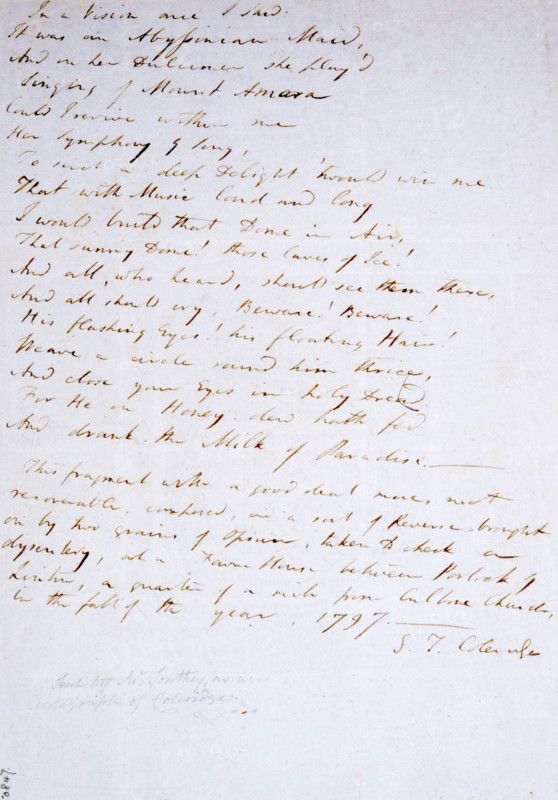 In a Vision once I saw:
It was an Abyssinian Maid,
And on her Dulcimer she play'd
Singing of Mount Amara
Could I revive within me
Her Symphony & Song,
To such a deep Delight 'twould win me
That with Music loud and long
I would build that Dome in Air,
That sunny Dome! those Caves of Ice!
And all, who heard, should see them there,
And all should cry, Beware! Beware!
His flashing Eyes! his floating Hair!
Weave a circle round him thrice,
And close your Eyes in holy Dread:
For He on Honey-dew hath fed
And drank the Milk of Paradise.—
This fragment with a good deal more, not
recoverable, composed, in a sort of Reverie brought
on by two grains of Opium, taken to check a
dysentery, at a Farm House between Porlock &
Linton, a quarter of a mile from Culbone Church,
in the fall of the year, 1797.—
S. T. Coleridge
Sent by Mr Southey, as an
Autograph of Coleridge.